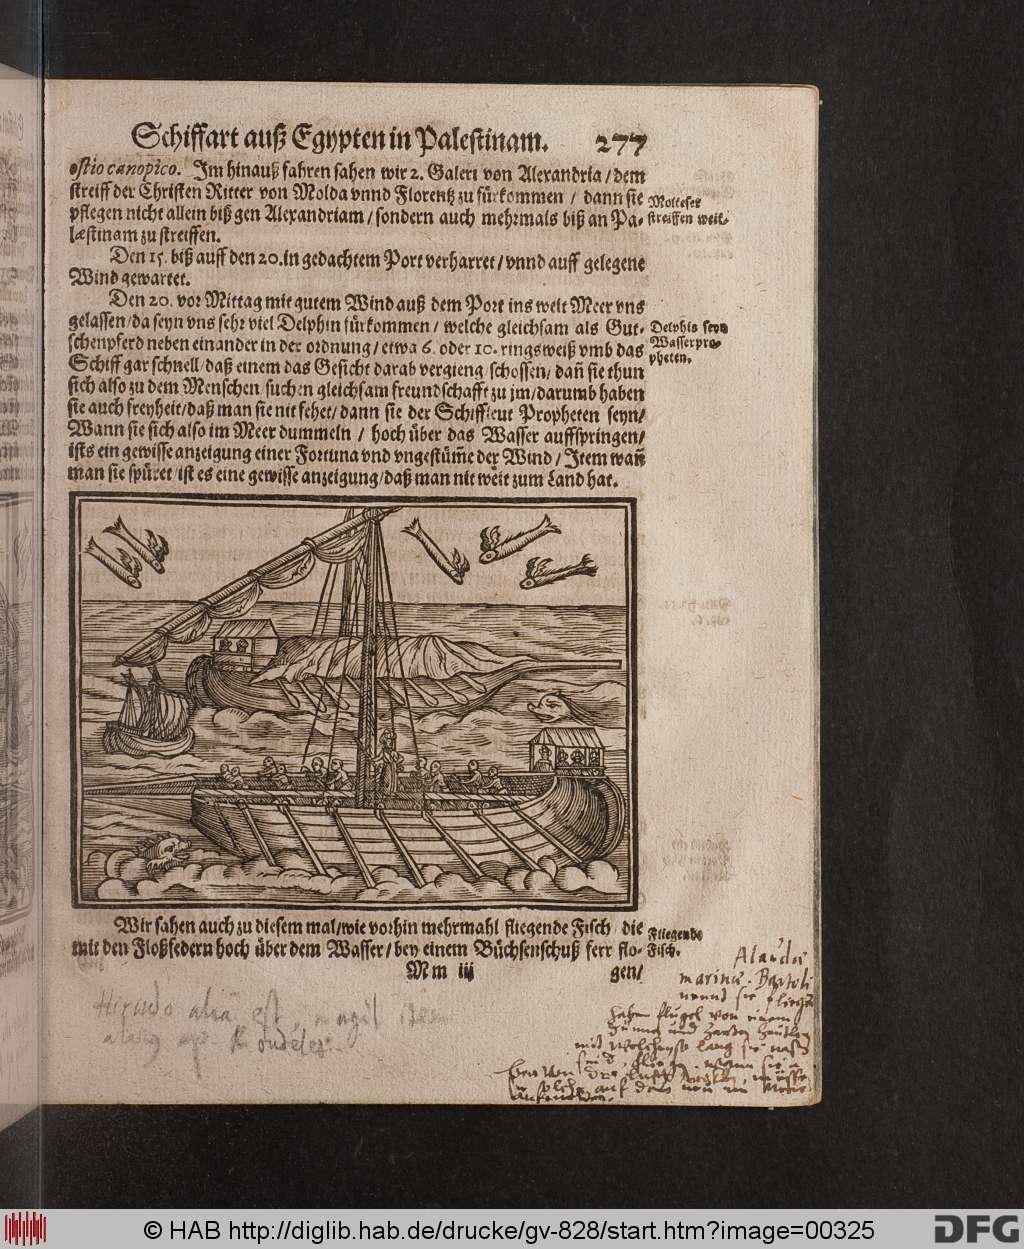 Schiffart auß Egypten in Palestinam. 277
ostio canopico. Im hinauß fahren sahen wir 2. Galeri von Alexandria / dem
streiff der Christen Ritter von Molda vnnd Florentz zu fürkommen / dann sie
pflegen nicht allein biß gen Alexandriam / sondern auch mehrmals biß an Pa-
læstinam zu streiffen.
Molteser
streiffen weit.
Den 15. biß auff den 20. in gedachtem Port verharret / vnnd auff gelegene
Wind gewartet.
Den 20. vor Mittag mit gutem Wind auß dem Port ins weit Meer vns
gelassen / da seyn vns sehr viel Delphin fürkommen / welche gleichsam als Gut-
schenpferd neben einander in der ordnung / etwa 6. oder 10. ringsweiß vmb das
Schiff gar schnell / daß einem das Gesicht darab vergieng / schossen / dañ sie thun
sich also zu dem Menschen / suchen gleichsam freundschafft zu jm / darumb haben
sie auch freyheit / daß man sie nit fehet / dann sie der Schiffleut Propheten seyn /
Wann sie sich also im Meer dummeln / hoch über das Wasser auffspringen /
ists ein gewisse anzeigung einer Fortuna vnd vngestüm̃e der Wind / Item wañ
man sie spüret / ist es eine gewisse anzeigung / daß man nit weit zum Land hat.
Delphin seyn
Wasserpro-
pheten.
Wir sahen auch zu diesem mal / wie vorhin mehrmahl fliegende Fisch / die
mit den Floßfedern hoch über dem Wasser / bey einem Büchsenschuß ferr flo-
Mm iij gen /
Fliegende
Fisch.
Hirundo alia est
Rondelet
Alaudæ
marinæ. Bartoli
nennd sie fliege
haben flügel von einem
dünnen und zarten heutlen